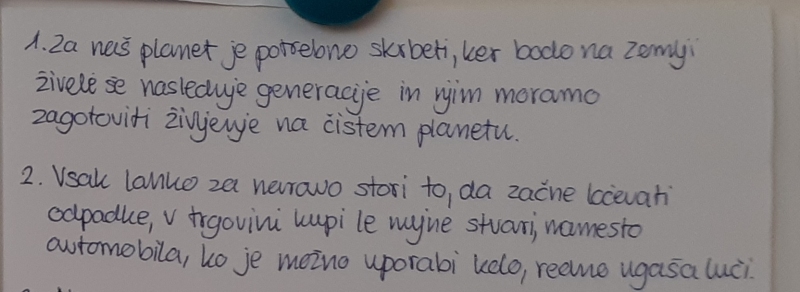 1. Za naš planet je potrebno skrbeti, ker bodo na zemlji
živele še nasleduje generacije in njim moramo
zagotoviti življenje na čistem planetu.
2. Vsak lahko za naravo stori to, da začne ločevati
odpadke, v trgovini kupi le nujne stvari, namesto
avtomobila, ko je možno uporabi kolo, redno ugaša luči.